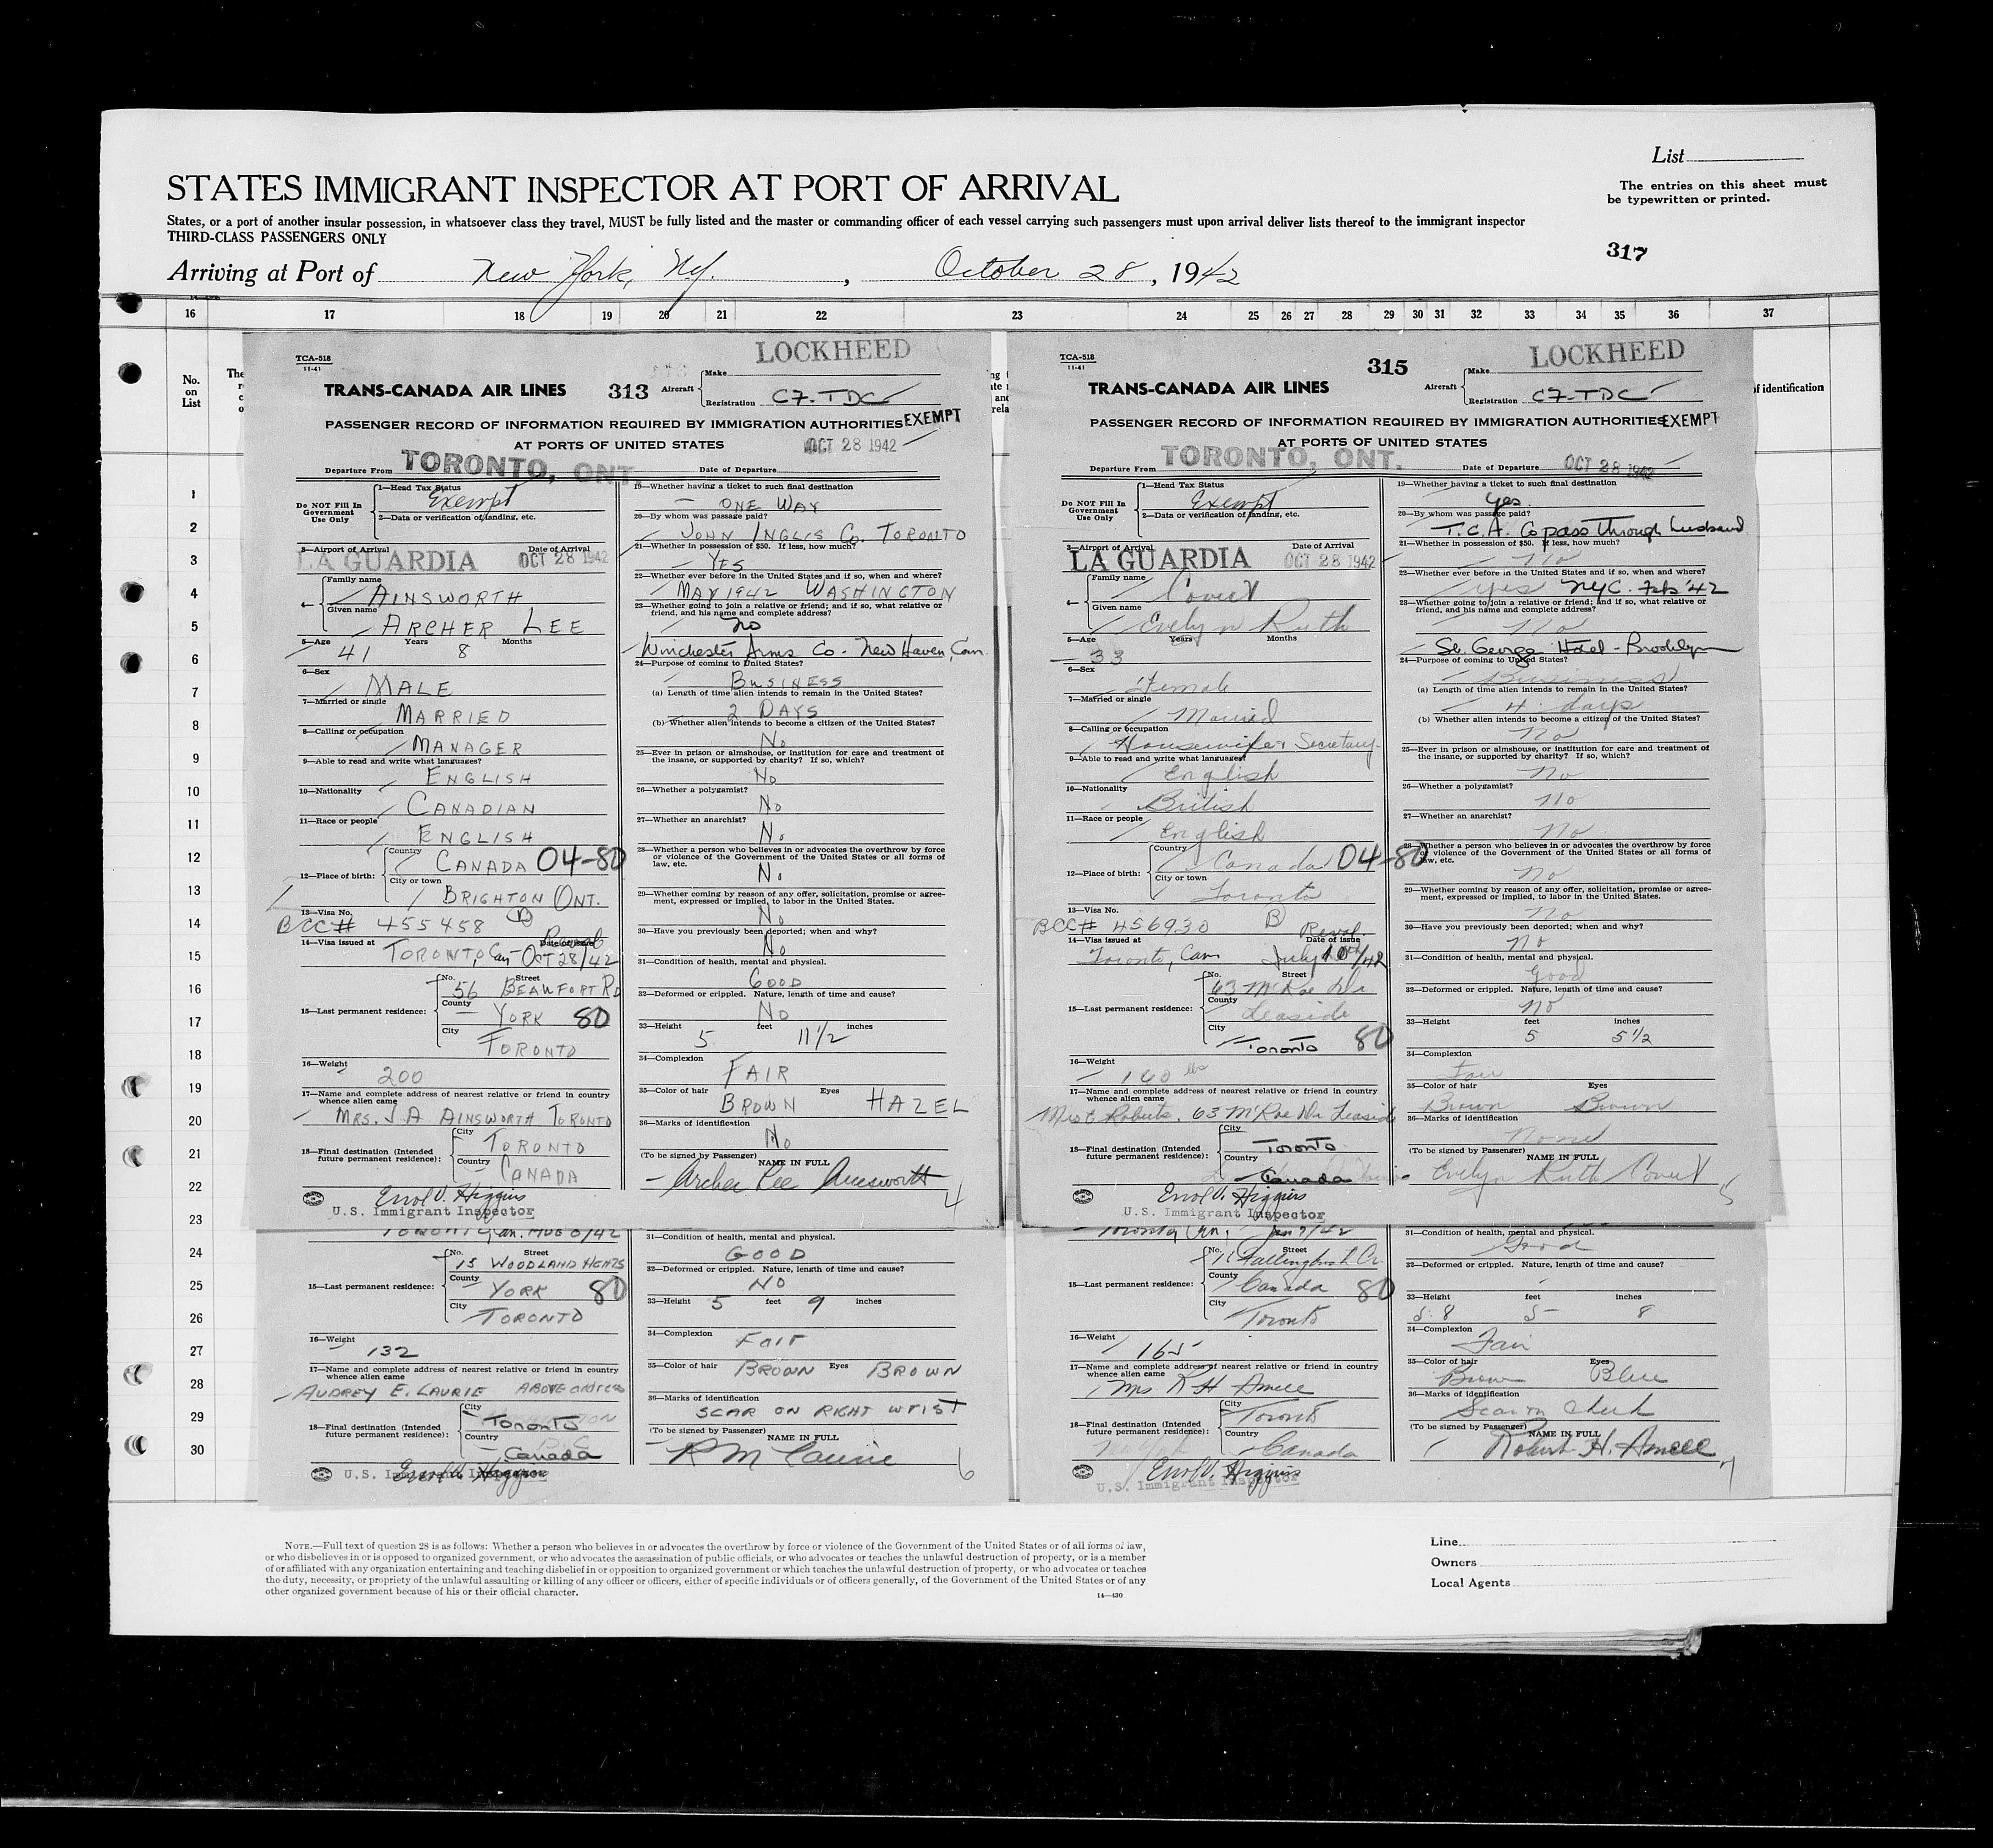 List
STATES IMMIGRANT INSPECTOR AT PORT OF ARRIVAL
The entries on this sheet must
be typewritten or printed.
States, or a port of another insular possession, in whatsoever class they travel, MUST be fully listed and the master or commanding officer of each vessel carrying such passengers must upon arrival deliver lists thereof to the immigrant inspector
THIRD-CLASS PASSENGERS ONLY
317
Arriving at Port of New York, NY. , October 28, 1942
16 17 18 19 20 21 22 23 24 25 26 27 28 29 30 31 32 33 34 35 36 37
No.
on
List
of identification
1
2
3
4
5
6
7
8
9
10
11
12
13
14
15
16
17
18
19
20
21
22
23
24
25
26
27
28
29
30
TCA-518
11-41
LOCKHEED
TRANS-CANADA AIR LINES 313 Aircraft Make
Registration C7-TDC
PASSENGER RECORD OF INFORMATION REQUIRED BY IMMIGRATION AUTHORITIES EXEMPT
AT PORTS OF UNITED STATES OCT 28 1942
Departure From TORONTO, ONT. Date of Departure
Do NOT Fill In
Government
Use Only
1—Head Tax Status
Exempt
2—Data or verification of landing, etc.
3—Airport of Arrival Date of Arrival
LA GUARDIA OCT 28 1942
4— Family name
AINSWORTH
Given name
ARCHER LEE
5—Age Years Months
41 8
6—Sex
MALE
7—Married or single
MARRIED
8—Calling or occupation
MANAGER
9—Able to read and write what languages?
ENGLISH
10—Nationality
CANADIAN
11—Race or people
ENGLISH
12—Place of birth: Country
CANADA 04-80
City or town
BRIGHTON ONT.
13—Visa No.
BCC# 455458 B
14—Visa issued at Date of issue
TORONTO, Can OCT 28/42
15—Last permanent residence: No. Street
56 BEAUFORT RD
County
YORK 80
City
TORONTO
16—Weight
200
17—Name and complete address of nearest relative or friend in country
whence alien came
MRS. J. A. AINSWORTH TORONTO
18—Final destination (Intended
future permanent residence): City
TORONTO
Country
CANADA
Errol V. Higgins
U.S. Immigrant Inspector
19—Whether having a ticket to such final destination
— ONE WAY
20—By whom was passage paid?
JOHN INGLIS Co. TORONTO
21—Whether in possession of $50. If less, how much?
YES
22—Whether ever before in the United States and if so, when and where?
MAY 1942 WASHINGTON
23—Whether going to join a relative or friend; and if so, what relative or
friend, and his name and complete address?
No
Winchester Arms Co. New Haven, Conn.
24—Purpose of coming to United States?
BUSINESS
(a) Length of time alien intends to remain in the United States?
2 DAYS
(b) Whether alien intends to become a citizen of the United States?
No
25—Ever in prison or almshouse, or institution for care and treatment of
the insane, or supported by charity? If so, which?
No
26—Whether a polygamist?
No
27—Whether an anarchist?
No
28—Whether a person who believes in or advocates the overthrow by force
or violence of the Government of the United States or all forms of
law, etc.
No
29—Whether coming by reason of any offer, solicitation, promise or agree-
ment, expressed or implied, to labor in the United States.
No
30—Have you previously been deported; when and why?
No
31—Condition of health, mental and physical.
GOOD
32—Deformed or crippled. Nature, length of time and cause?
No
33—Height feet inches
5 11 1/2
34—Complexion
FAIR
35—Color of hair Eyes
BROWN HAZEL
36—Marks of identification
No
(To be signed by Passenger) NAME IN FULL
Archer Lee Ainsworth
4
TCA-518
11-41
LOCKHEED
TRANS-CANADA AIR LINES 315 Aircraft Make
Registration C7-TDC
PASSENGER RECORD OF INFORMATION REQUIRED BY IMMIGRATION AUTHORITIES EXEMPT
AT PORTS OF UNITED STATES
Departure From TORONTO, ONT. Date of Departure OCT 28 1942
Do NOT Fill In
Government
Use Only
1—Head Tax Status
Exempt
2—Data or verification of landing, etc.
3—Airport of Arrival Date of Arrival
LA GUARDIA OCT 28 1942
4— Family name
Covert
Given name
Evelyn Ruth
5—Age Years Months
33
6—Sex
Female
7—Married or single
Married
8—Calling or occupation
Housewife & Secretary
9—Able to read and write what languages?
English
10—Nationality
British
11—Race or people
English
12—Place of birth: Country
Canada 04-80
City or town
Toronto
13—Visa No.
BCC# 456930 B Reval.
14—Visa issued at Date of issue
Toronto, Can July 10th/42
15—Last permanent residence: No. Street
63 McRae Dr
County
Leaside
City
Toronto 80
16—Weight
160 lbs
17—Name and complete address of nearest relative or friend in country
whence alien came
Mrs C Roberts. 63 McRae Dr Leaside
18—Final destination (Intended
future permanent residence): City
Toronto
Country
Canada
Errol V. Higgins
U.S. Immigrant Inspector
19—Whether having a ticket to such final destination
yes
20—By whom was passage paid?
T.C.A. Co pass through husband
21—Whether in possession of $50. If less, how much?
No
22—Whether ever before in the United States and if so, when and where?
yes NYC. Feb '42
23—Whether going to join a relative or friend; and if so, what relative or
friend, and his name and complete address?
No
St. George Hotel - Brooklyn
24—Purpose of coming to United States?
Business
(a) Length of time alien intends to remain in the United States?
4 days
(b) Whether alien intends to become a citizen of the United States?
No
25—Ever in prison or almshouse, or institution for care and treatment of
the insane, or supported by charity? If so, which?
no
26—Whether a polygamist?
no
27—Whether an anarchist?
No
28—Whether a person who believes in or advocates the overthrow by force
or violence of the Government of the United States or all forms of
law, etc.
No
29—Whether coming by reason of any offer, solicitation, promise or agree-
ment, expressed or implied, to labor in the United States.
no
30—Have you previously been deported; when and why?
No
31—Condition of health, mental and physical.
Good
32—Deformed or crippled. Nature, length of time and cause?
No
33—Height feet inches
5 5 1/2
34—Complexion
Fair
35—Color of hair Eyes
Brown Brown
36—Marks of identification
None
(To be signed by Passenger) NAME IN FULL
Evelyn Ruth Covert
5
TORONTO, Can. AUG 6/42
15—Last permanent residence: No. Street
15 WOODLAND HGHTS
County
YORK 80
City
TORONTO
16—Weight
132
17—Name and complete address of nearest relative or friend in country
whence alien came
AUDREY E. LAURIE ABOVE address
18—Final destination (Intended
future permanent residence): City
Toronto
Country
Canada
Errol V. Higgins
U.S. Immigrant Inspector
31—Condition of health, mental and physical.
GOOD
32—Deformed or crippled. Nature, length of time and cause?
NO
33—Height 5 feet 9 inches
34—Complexion
FAIR
35—Color of hair BROWN Eyes BROWN
36—Marks of identification
SCAR ON RIGHT WRIST
(To be signed by Passenger) NAME IN FULL
R M Laurie
6
Toronto, Can.
15—Last permanent residence: No. Street
11 Fallingbrook Cr.
County
Canada 80
City
Toronto
16—Weight
165
17—Name and complete address of nearest relative or friend in country
whence alien came
Mrs R H Amell
18—Final destination (Intended
future permanent residence): City
Toronto
Country
Canada
Errol V. Higgins
U.S. Immigrant Inspector
31—Condition of health, mental and physical.
Good
32—Deformed or crippled. Nature, length of time and cause?
33—Height feet inches
5.8 5 8
34—Complexion
Fair
35—Color of hair Eyes
Brown Blue
36—Marks of identification
Scar on Cheek
(To be signed by Passenger) NAME IN FULL
Robert H. Amell
7
NOTE.—Full text of question 28 is as follows: Whether a person who believes in or advocates the overthrow by force or violence of the Government of the United States or of all forms of law,
or who disbelieves in or is opposed to organized government, or who advocates the assassination of public officials, or who advocates or teaches the unlawful destruction of property, or is a member
of or affiliated with any organization entertaining and teaching disbelief in or opposition to organized government or which teaches the unlawful destruction of property, or who advocates or teaches
the duty, necessity, or propriety of the unlawful assaulting or killing of any officer or officers, either of specific individuals or of officers generally, of the Government of the United States or of any
other organized government because of his or their official character.
14—430
Line
Owners
Local Agents